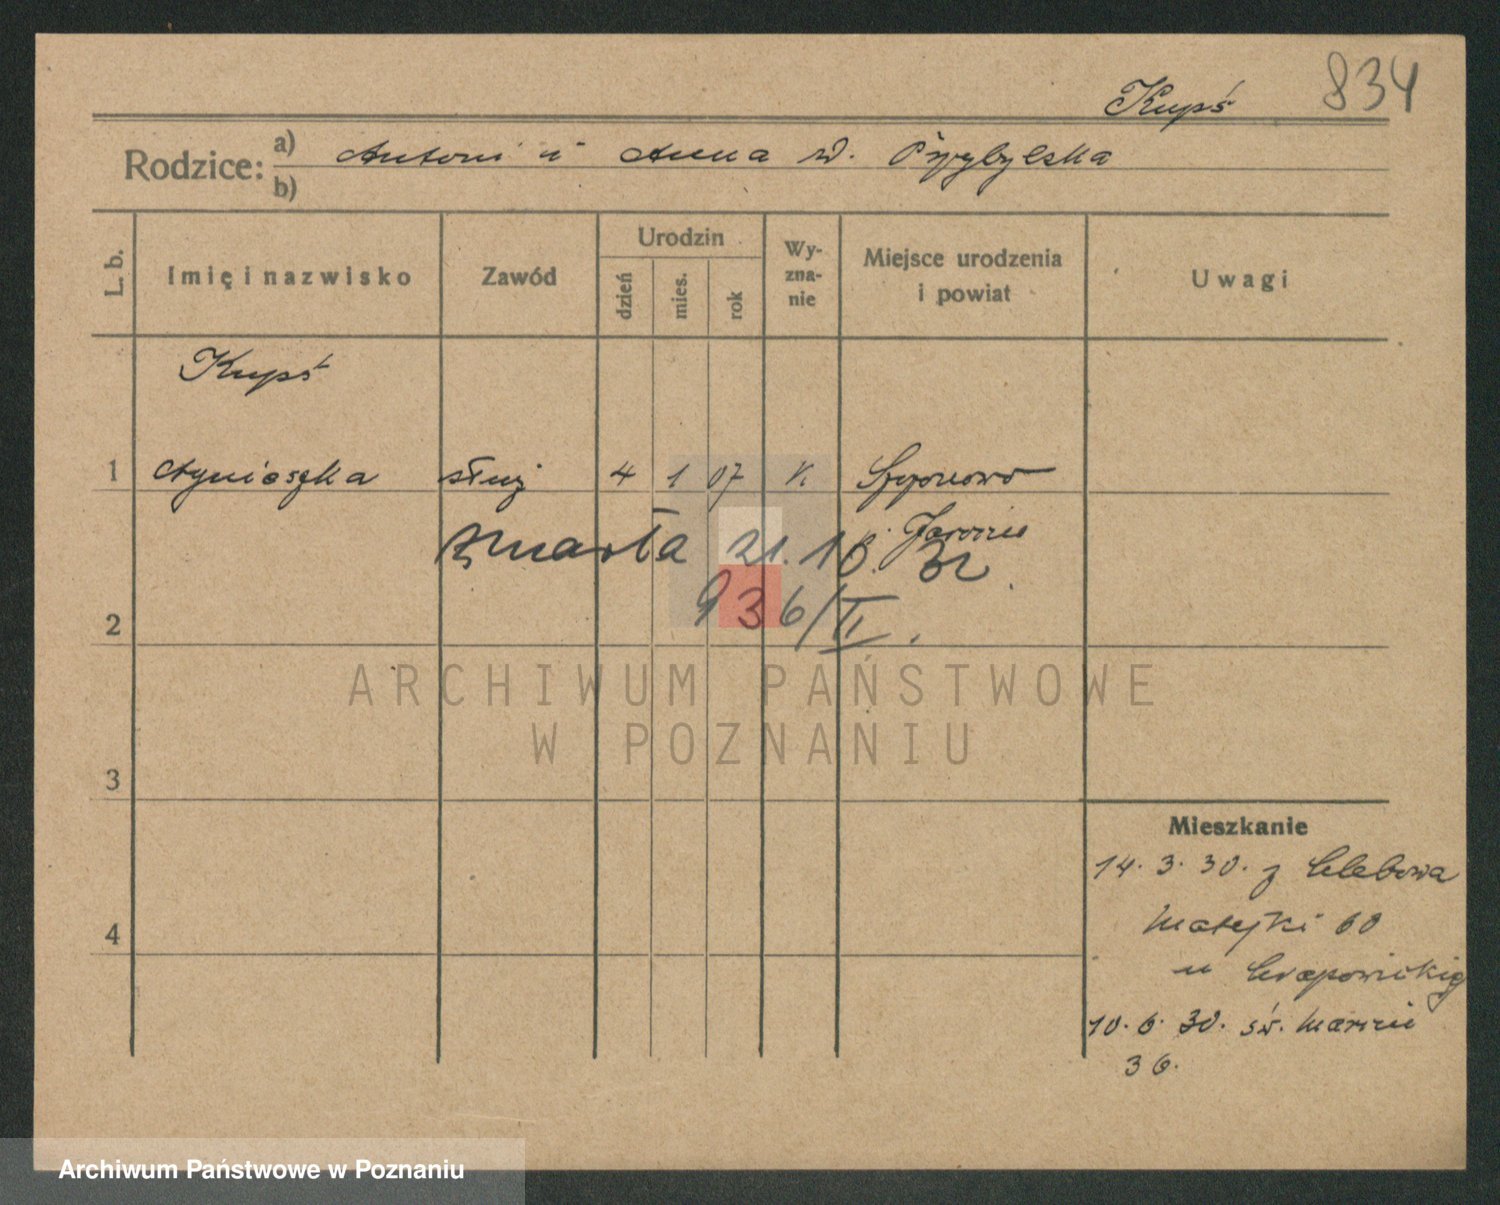 834
Kupś
Rodzice: a) Antoni i Anna d. Przybylska
b)
L. b. Imię i nazwisko Zawód Urodzin dzień mies. rok Wy-zna-nie Miejsce urodzenia i powiat Uwagi
Kupś
1 Agnieszka służ 4 1 07 K
Jarocin
zmarła 21. 32
936/II.
2
ARCHIWUM PAŃSTWOWE
W POZNANIU
3
Mieszkanie
14. 3. 30. z
4 Matejki 60
u
10. 6. 30. św. Marcin
36.
Archiwum Państwowe w Poznaniu